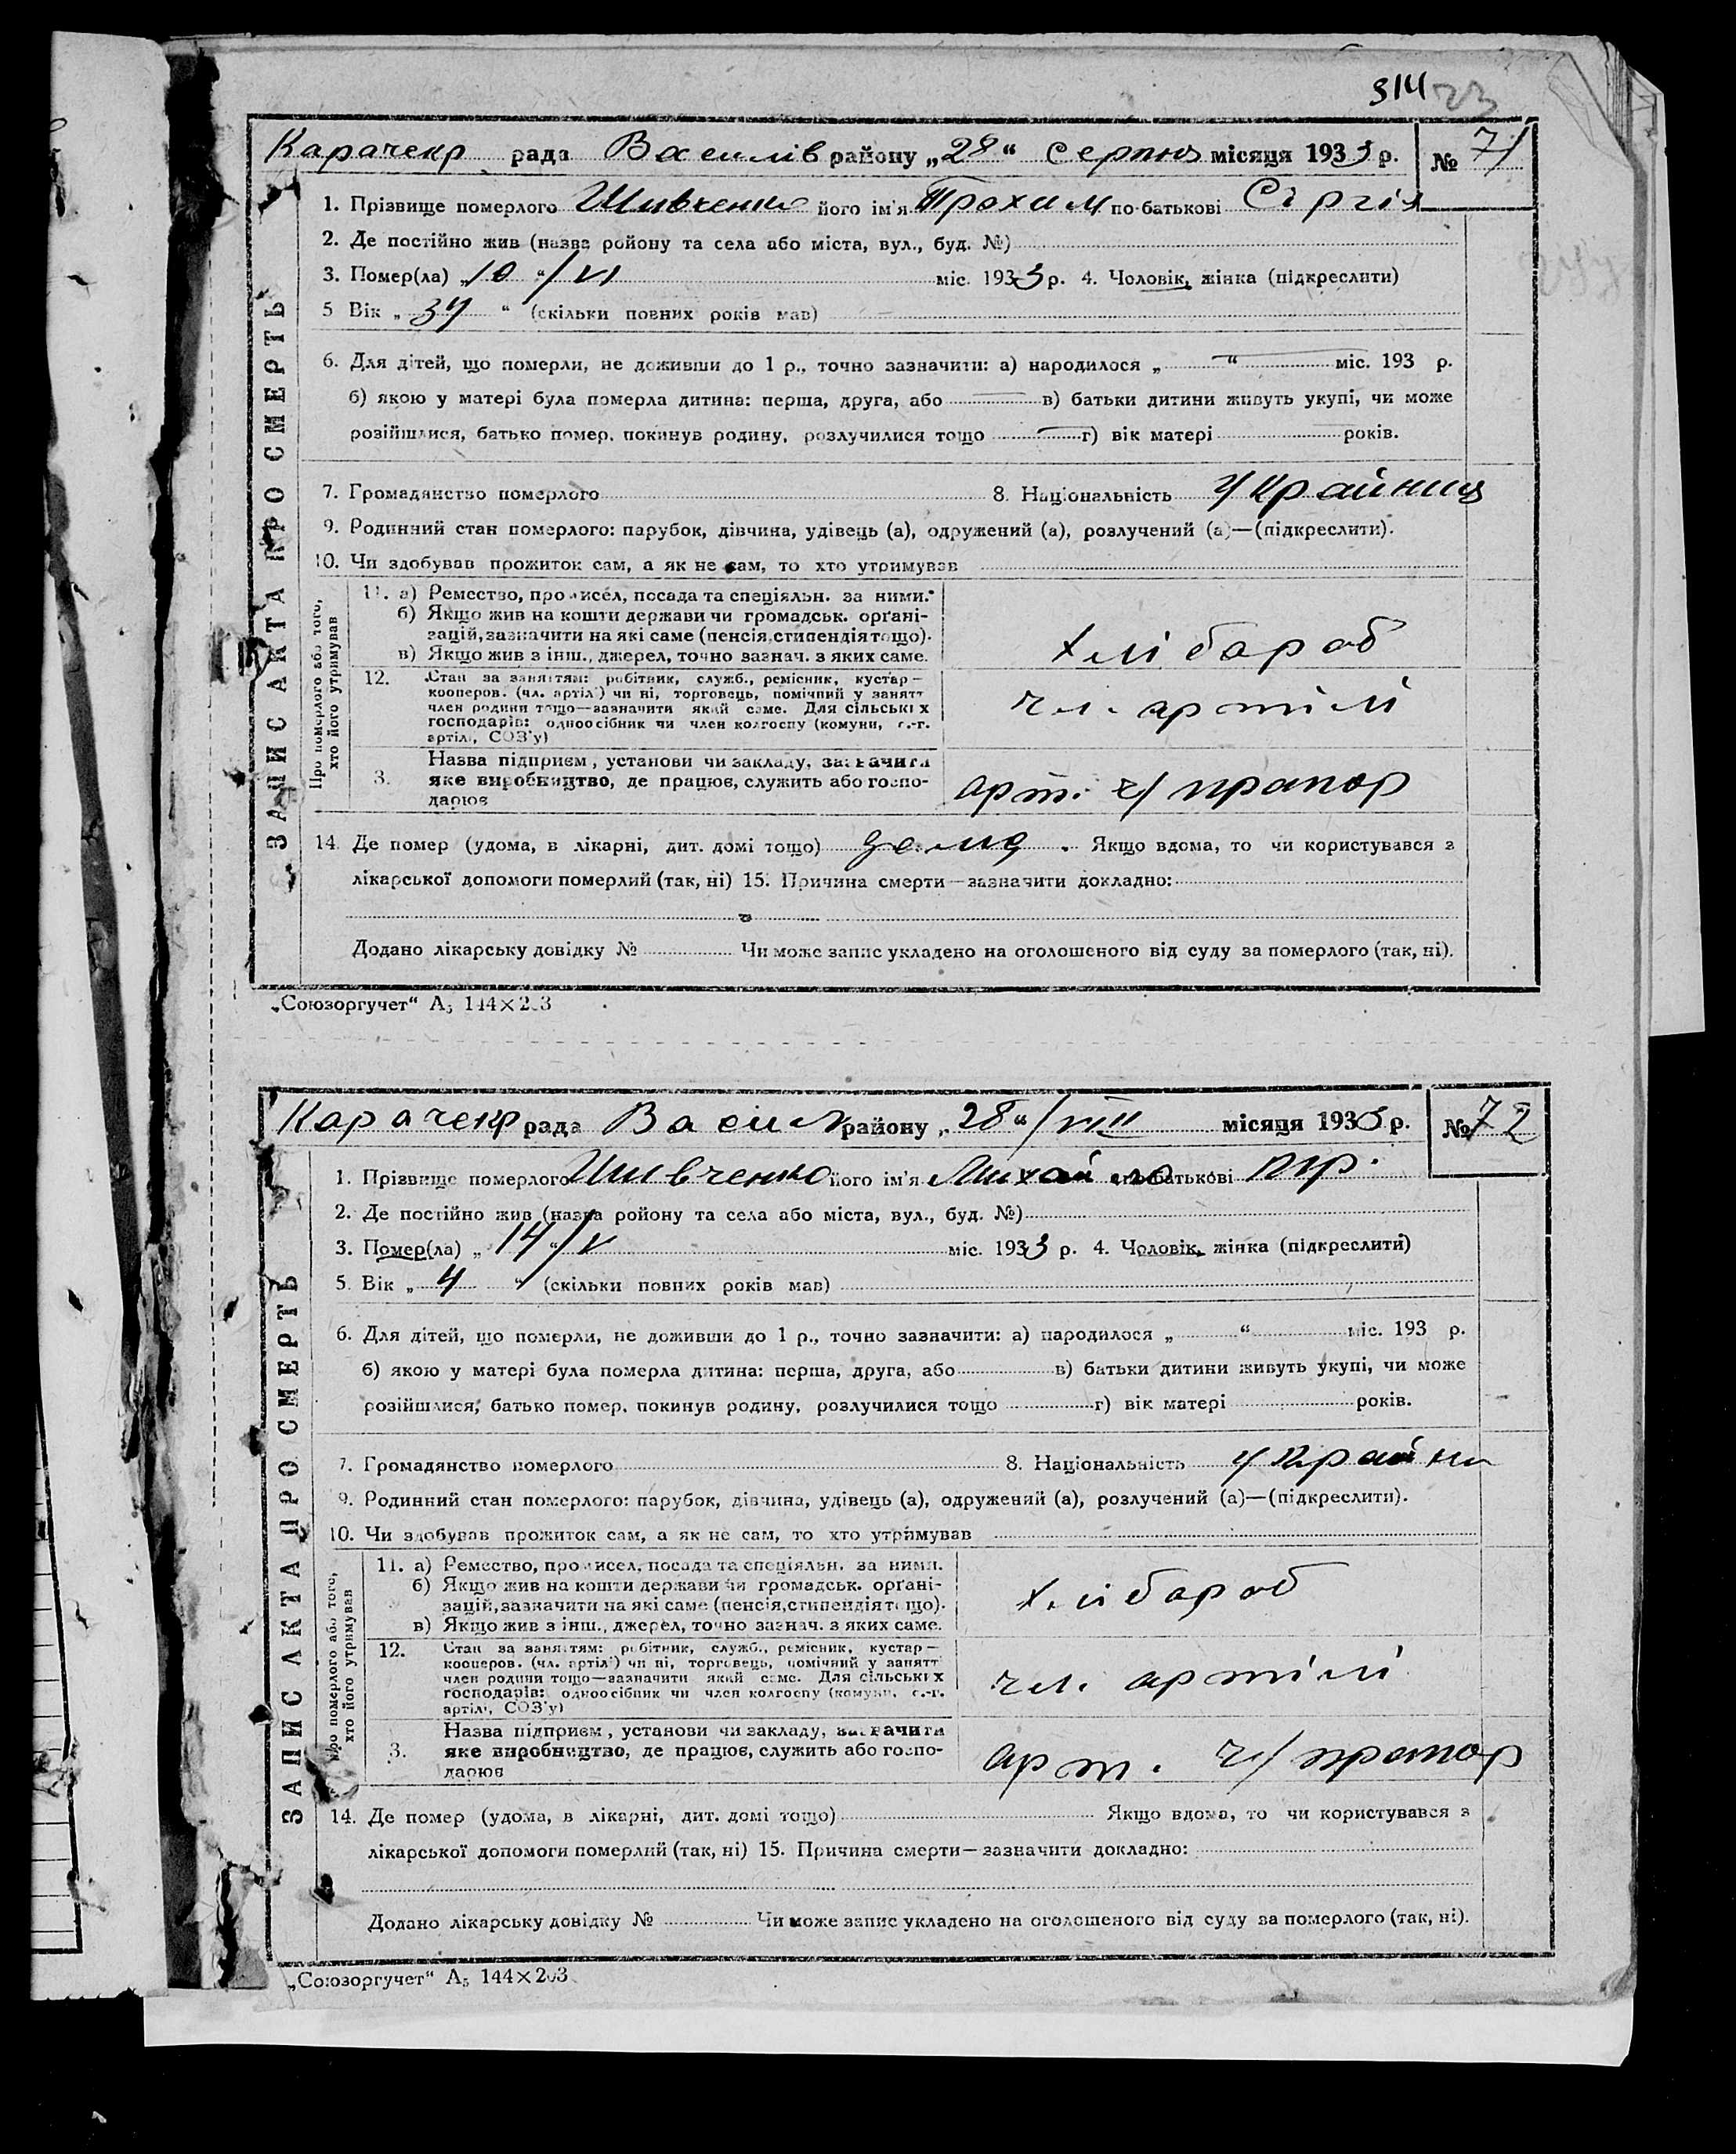 314 23
Карачекр рада Василів району „28“ Серпня місяця 1933 р. № 71
1. Прізвище померлого Шивченко його ім'я Трохим по-батькові Сергія
2. Де постійно жив (назва ройону та села або міста, вул., буд. №)
3. Помер(ла) „10“/VI міс. 1933 р. 4. Чоловік, жінка (підкреслити)
5 Вік „34“ (скільки повних років мав)
6. Для дітей, що померли, не доживши до 1 р., точно зазначити: а) народилося „ “ міс. 193 р.
б) якою у матері була померла дитина: перша, друга, або в) батьки дитини живуть укупі, чи може
розійшлися, батько помер, покинув родину, розлучилися тощо г) вік матері років.
7. Громадянство померлого 8. Національність Українец
9. Родинний стан померлого: парубок, дівчина, удівець (а), одружений (а), розлучений (а)—(підкреслити).
10. Чи здобував прожиток сам, а як не сам, то хто утримував
ЗАПИС АКТА ПРО СМЕРТЬ
Про померлого або того, хто його утримував
11. а) Ремество, промисел, посада та спеціяльн. за ними.
б) Якщо жив на кошти держави чи громадськ. орґані-
зацій, зазначити на які саме (пенсія, стипендія тощо).
в) Якщо жив з інш., джерел, точно зазнач. з яких саме.
хлібароб
12. Стан за заняттям: робітник, служб., ремісник, кустар—
кооперов. (чл. артілі) чи ні, торговець, помічний у занятт
член родини тощо—зазначити який саме. Для сільських
господарів: одноосібник чи член колгоспу (комуни, с.-г.
артілі, СОЗ'у)
чл. артілі
3. Назва підприєм, установи чи закладу, зазначити
яке виробництво, де працює, служить або госпо-
дарює
арт. ч/ прапор
14. Де помер (удома, в лікарні, дит. домі тощо) дома. Якщо вдома, то чи користувався з
лікарської допомоги померлий (так, ні) 15. Причина смерти—зазначити докладно:
Додано лікарську довідку № Чи може запис укладено на оголошеного від суду за померлого (так, ні).
„Союзоргучет“ А₅ 144×203
Карачекр рада Васил району „28“/VIII місяця 1933 р. № 72
1. Прізвище померлого Шивченко його ім'я Михайло по-батькові тр.
2. Де постійно жив (назва ройону та села або міста, вул., буд. №)
3. Помер(ла) „14“/V міс. 1933 р. 4. Чоловік, жінка (підкреслити)
5. Вік „4“ (скільки повних років мав)
6. Для дітей, що померли, не доживши до 1 р., точно зазначити: а) народилося „ “ міс. 193 р.
б) якою у матері була померла дитина: перша, друга, або в) батьки дитини живуть укупі, чи може
розійшлися, батько помер, покинув родину, розлучилися тощо г) вік матері років.
7. Громадянство померлого 8. Національність Украйни
9. Родинний стан померлого: парубок, дівчина, удівець (а), одружений (а), розлучений (а)—(підкреслити).
10. Чи здобував прожиток сам, а як не сам, то хто утримував
ЗАПИС АКТА ПРО СМЕРТЬ
Про померлого або того, хто його утримував
11. а) Ремество, промисел, посада та спеціяльн. за ними.
б) Якщо жив на кошти держави чи громадськ. орґані-
зацій, зазначити на які саме (пенсія, стипендія тощо).
в) Якщо жив з інш., джерел, точно зазнач. з яких саме.
хлібароб
12. Стан за заняттям: робітник, служб., ремісник, кустар—
кооперов. (чл. артілі) чи ні, торговець, помічний у занятт
член родини тощо—зазначити який саме. Для сільських
господарів: одноосібник чи член колгоспу (комуни, с.-г.
артілі, СОЗ'у)
чл. артілі
3. Назва підприєм, установи чи закладу, зазначити
яке виробництво, де працює, служить або госпо-
дарює
арт. ч/ прапор
14. Де помер (удома, в лікарні, дит. домі тощо) Якщо вдома, то чи користувався з
лікарської допомоги померлий (так, ні) 15. Причина смерти—зазначити докладно:
Додано лікарську довідку № Чи може запис укладено на оголошеного від суду за померлого (так, ні).
„Союзоргучет“ А₅ 144×203